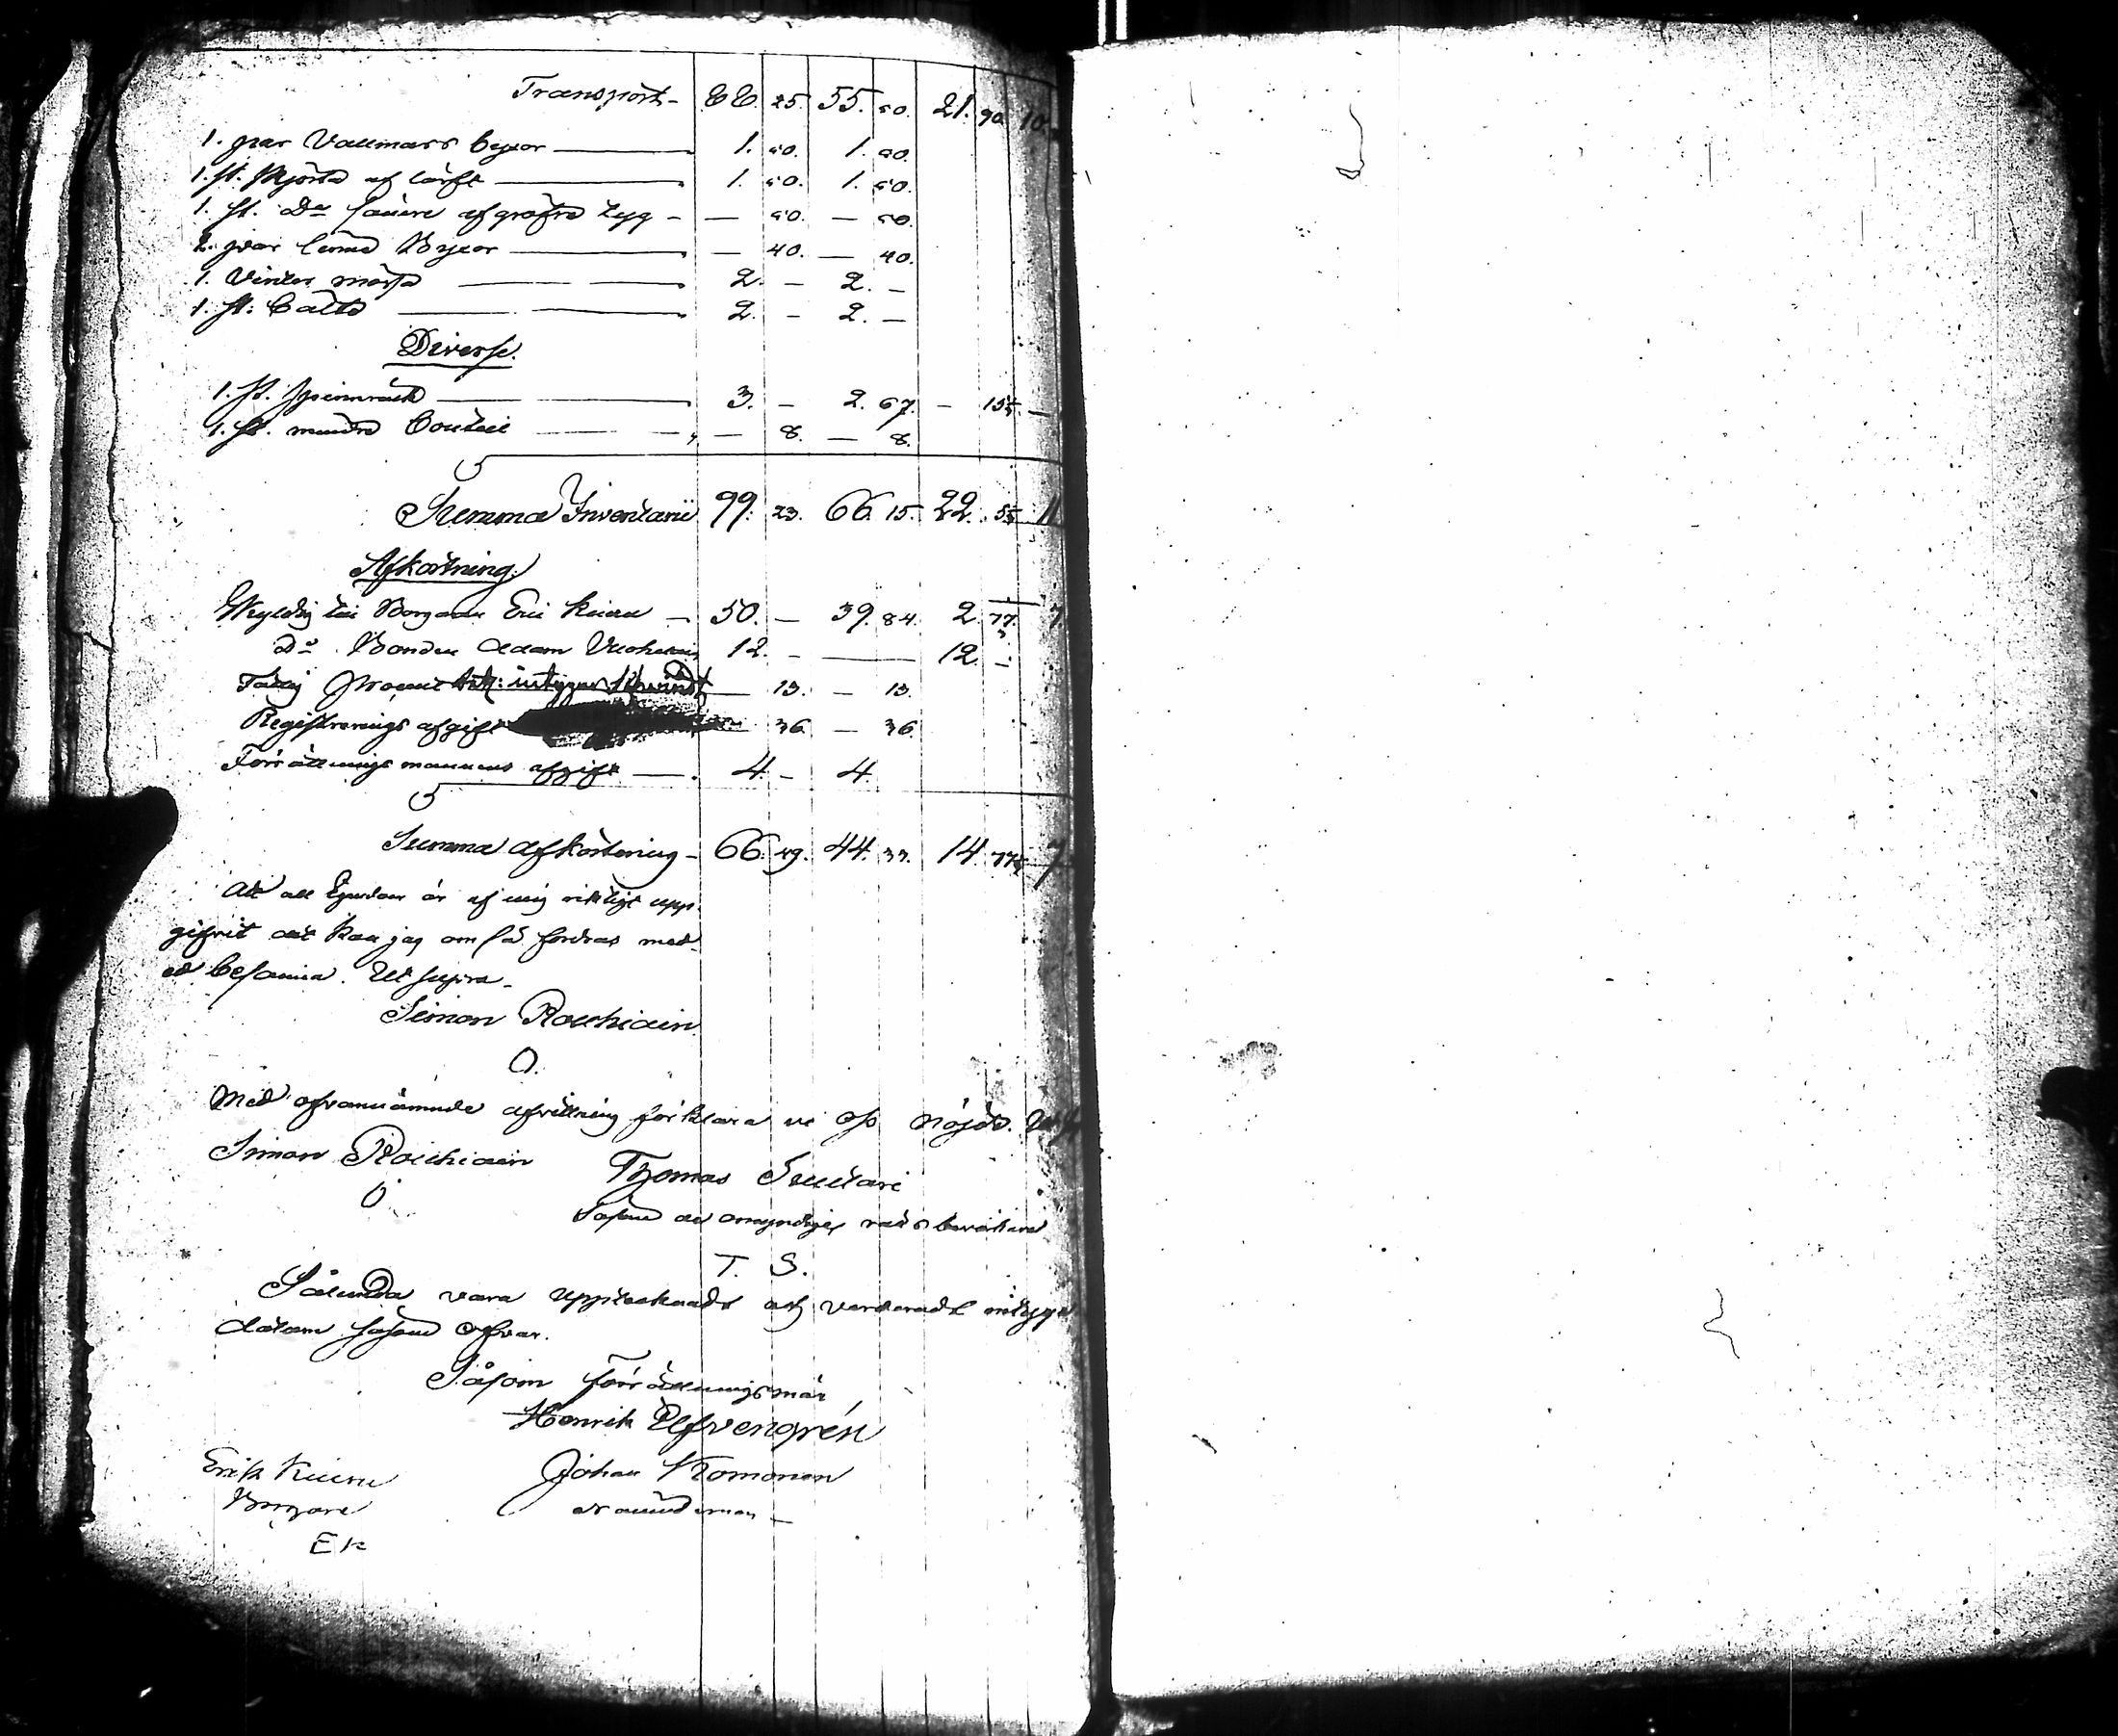 Transport - 88. 25. 55. 50. 21. 90. 10.
1. par Vallmars byxor — 1. 50. 1. 50.
1. st. skjorta af lärft — 1. 50. 1. 50.
1. st. Do sämre af gröfre tyg - — 50. — 50.
2. par linne Byxor — — 40. — 40.
1. Vinter mössa — 2. - 2. -
1. st. bälte — 2. - 2. -
Diverse.
1. st. spinnrock — 3. - 2. 67. - 155. —
1. st. mindre Boutei — — 8. — 8.
Summa Inventarii 99. 23. 66. 15. 22. 55. 11
Afkortning.
Skyldig till Borgare Eric — 50. — 39. 84. 2. 77. 7.
Do. Bonden Adam 12. - — 12. -
Fattig Procent — 13. — 13.
Registrerings afgift — 36. — 36.
Förrättnings mannens afgift — 4. - 4.
Summa afkortning - 66. 49. 44. 33. 14. 77. 7.
Att all Egendom är af mig riktigt upp-
gifvit det kan jag om så fordras med
ed besanna. Ut supra.
Simon
O.
Med ofvannämnde förklara vi oss nöjde.
Simon
O
Thomas
Såsom de omyndiges rätts bevakare
T. S.
Sålunda vara upptecknadt och värderadt intyga
datum såsom ofvan.
Såsom förrättningsmän
Henrik Elfvengrén
Erik Johan
Borgare Nämndeman —
E K